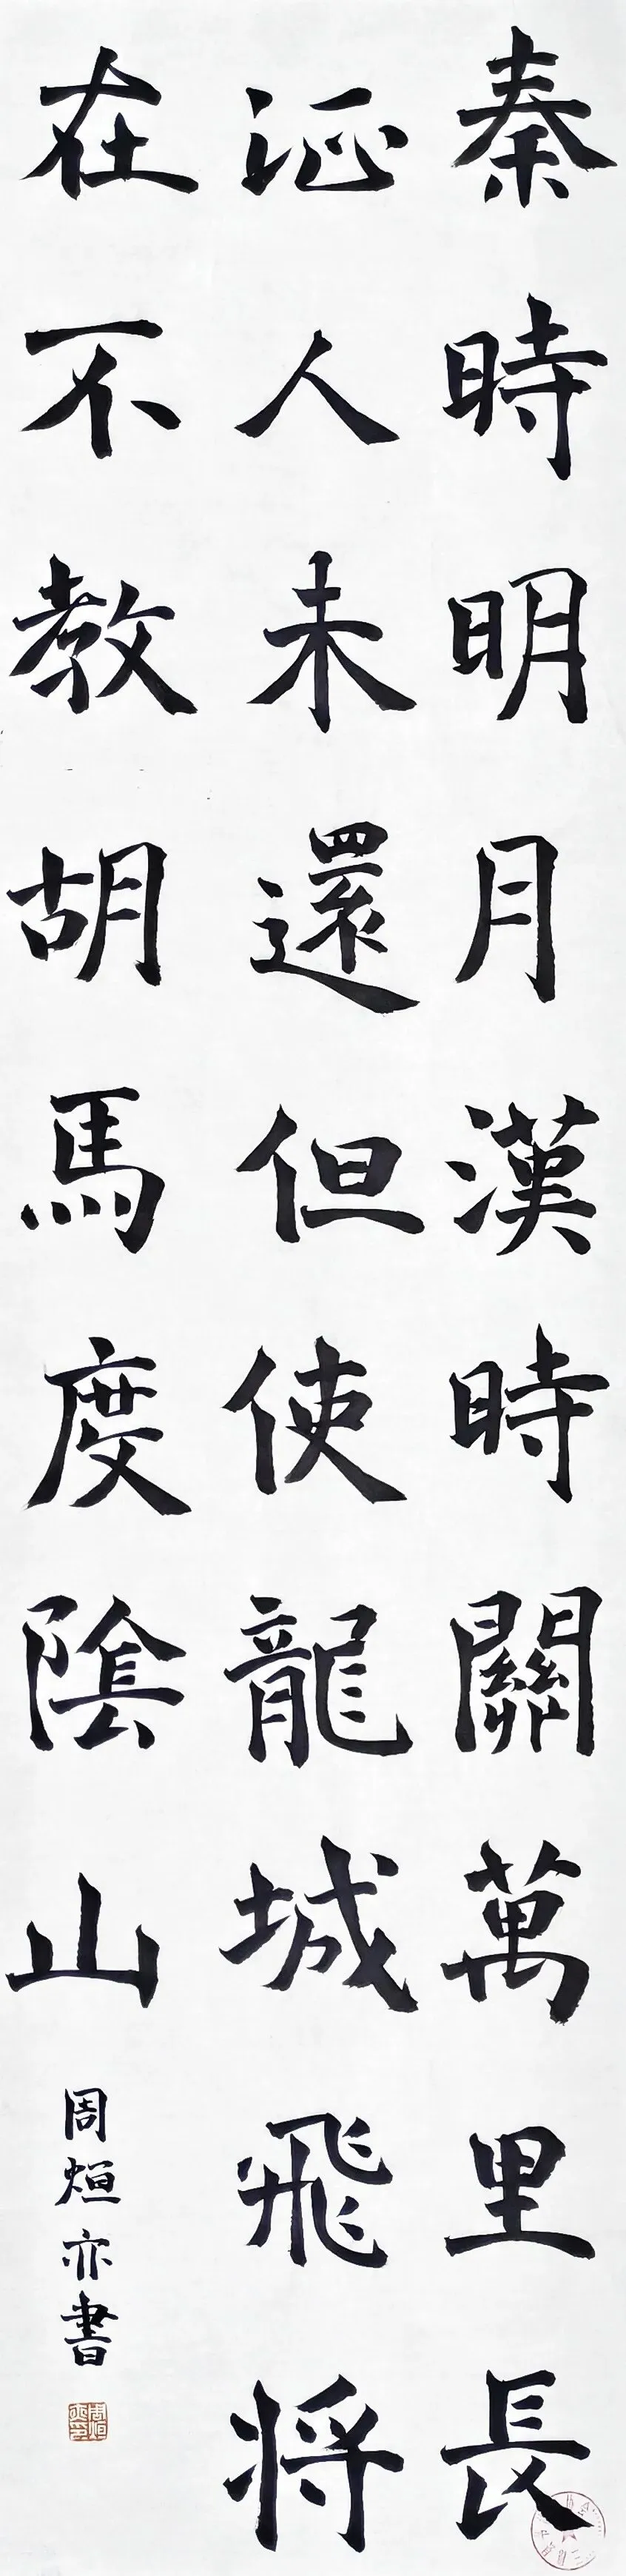 秦時明月漢時關萬里長
征人未還但使龍城飛將
在不教胡馬度陰山
周烜亦書